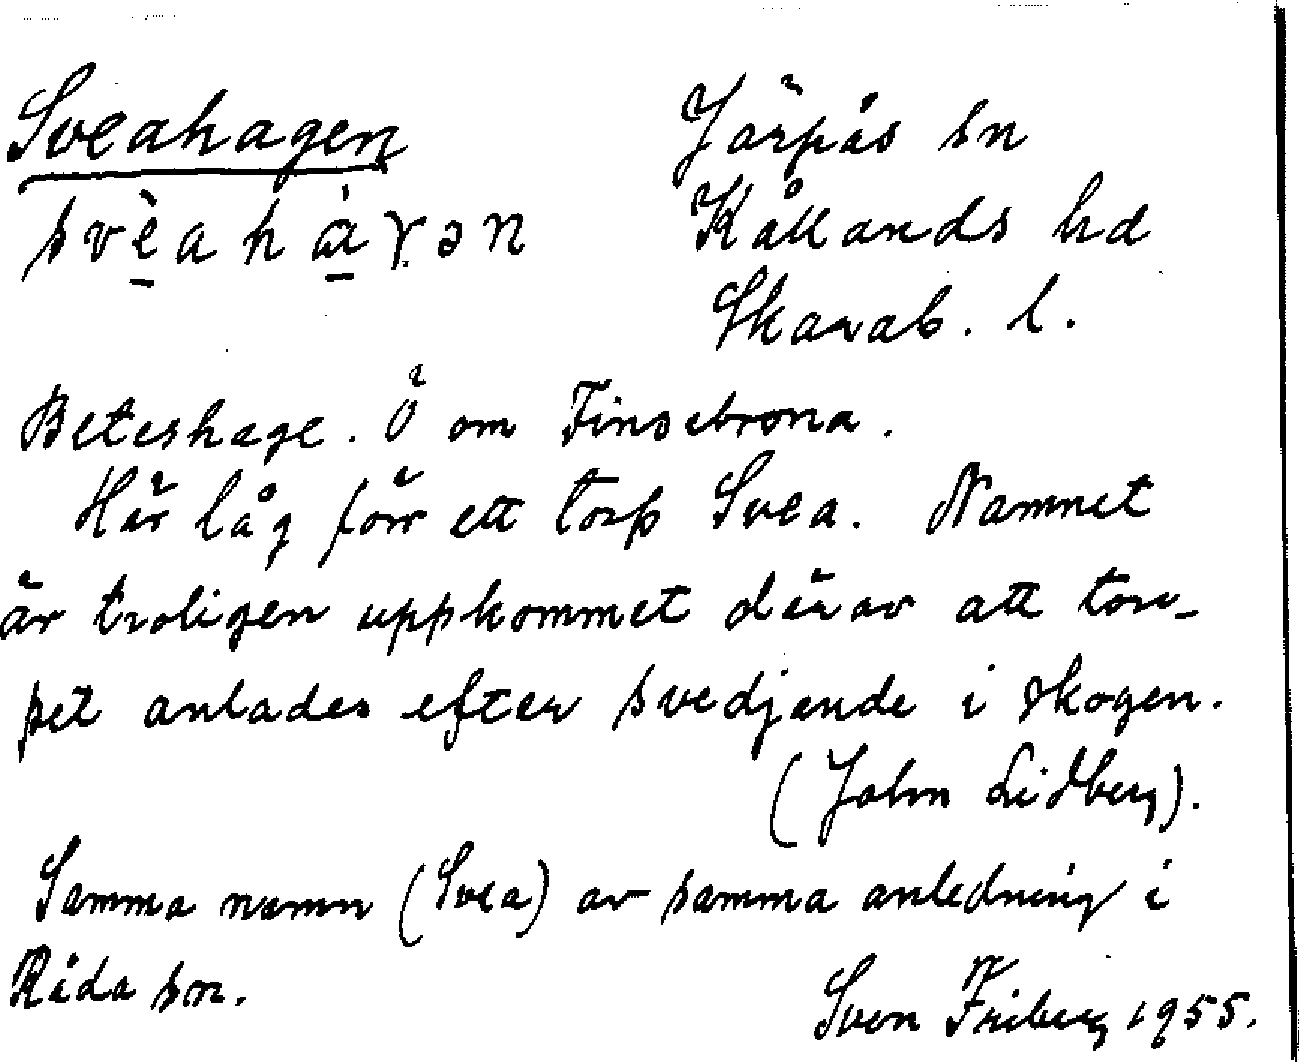 Sveahagen
Järpås sn
svèahàɣən
Kållands hd
Skarab. l.
Beteshage. Ö om Finsebrona.
Här låg förr ett torp Svea. Namnet
är troligen uppkommet därav att tor-
pet anlades efter svedjande i skogen.
(John Lidberg).
Samma namn (Svea) av samma anledning i
Råda sn.
Sven Friberg 1955.